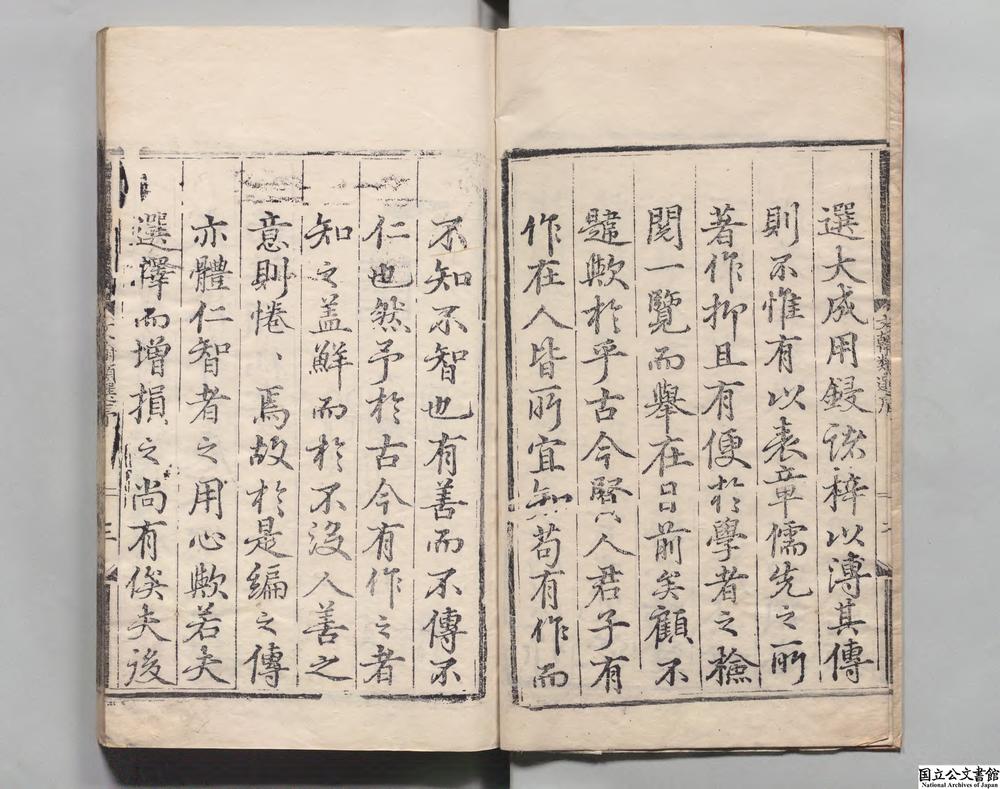 選大成用鋟諸梓以溥其傳
則不惟有以表章儒先之所
著作抑且有便於學者之檢
閱一覽而舉在目前矣顧不
韙歟於乎古今賢人君子有
作在人皆所宜知苟有作而
不知不智也有善而不傳不
仁也然予於古今有作之者
知之盖鮮而於不沒人善之
意則惓、焉故於是編之傳
亦體仁智者之用心歟若夫
選擇而增損之尚有俟夫後
文翰類選序
二
国立公文書館
National Archives of Japan